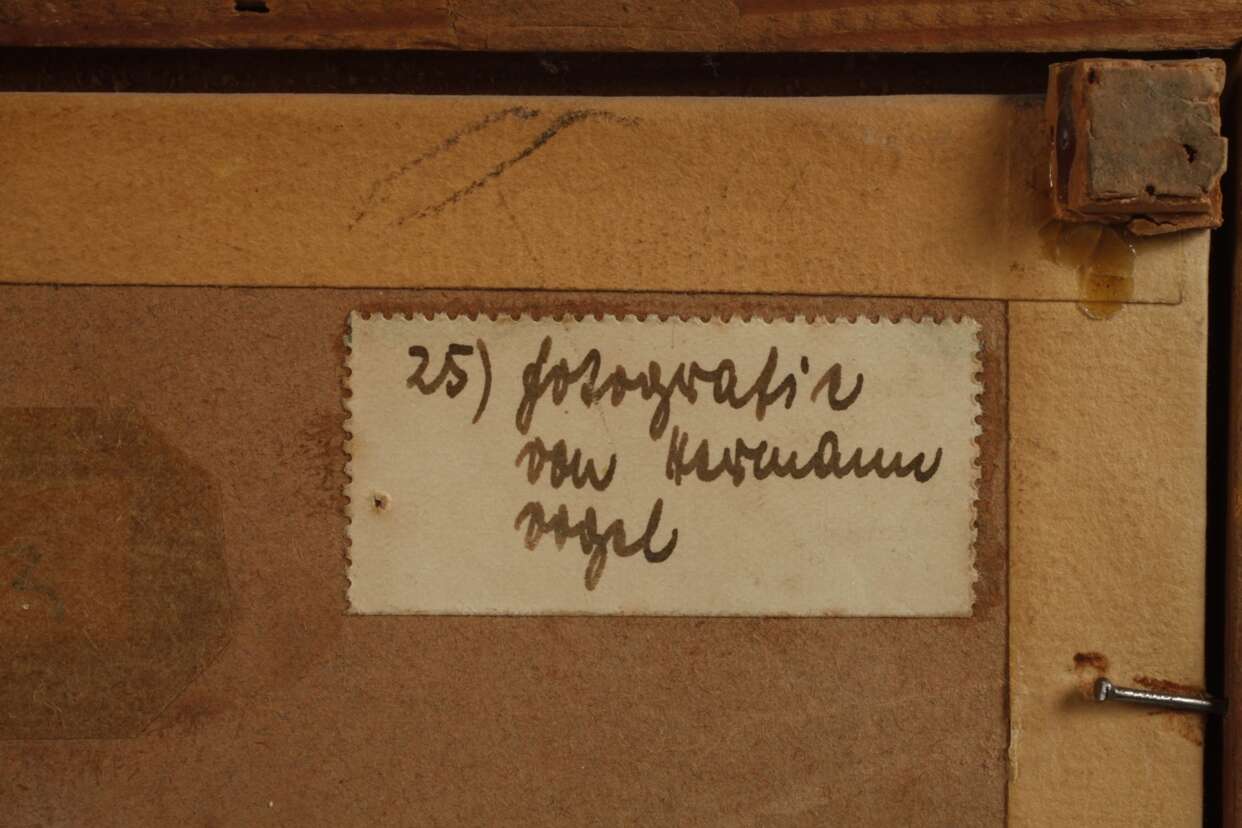 25) fotografie
von Hermann
vogel
3